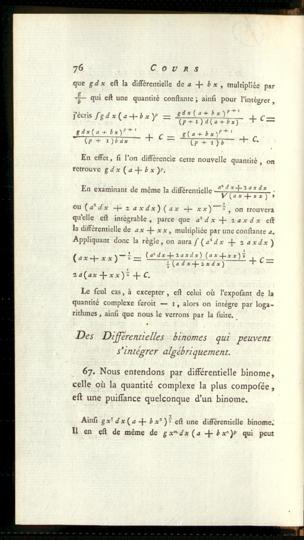 76 COURS
que gdx est la différentielle de a + bx, multipliée par
g/b qui est une quantité constante; ainsi pour l'intégrer,
j'écris ∫gdx(a+bx)^p = gdx(a+bx)^{p+1}/((p+1)d(a+bx)) + C =
gdx(a+bx)^{p+1}/((p+1)bdx) + C = g(a+bx)^{p+1}/((p+1)b) + C.
En effet, si l'on différencie cette nouvelle quantité, on
retrouve gdx(a+bx)^p.
En examinant de même la différentielle (a²dx+2axdx)/√(ax+xx);
ou (a²dx + 2axdx)(ax + xx)^{-½}, on trouvera
qu'elle est intégrable, parce que a²dx + 2axdx est
la différentielle de ax + xx, multipliée par une constante a.
Appliquant donc la règle, on aura ∫(a²dx + 2axdx)
(ax+xx)^{-½} = (a²dx+2axdx)(ax+xx)^{½}/(½(adx+2xdx)) + C =
2a(ax+xx)^{½} + C.
Le seul cas, à excepter, est celui où l'exposant de la
quantité complexe seroit — 1, alors on intègre par loga-
rithmes, ainsi que nous le verrons par la suite.
Des Différentielles binomes qui peuvent
s'intégrer algébriquement.
67. Nous entendons par différentielle binome,
celle où la quantité complexe la plus composée,
est une puissance quelconque d'un binome.
Ainsi est une différentielle binome.
Il en est de même de gx^m dx(a + bx^n)^p qui peut